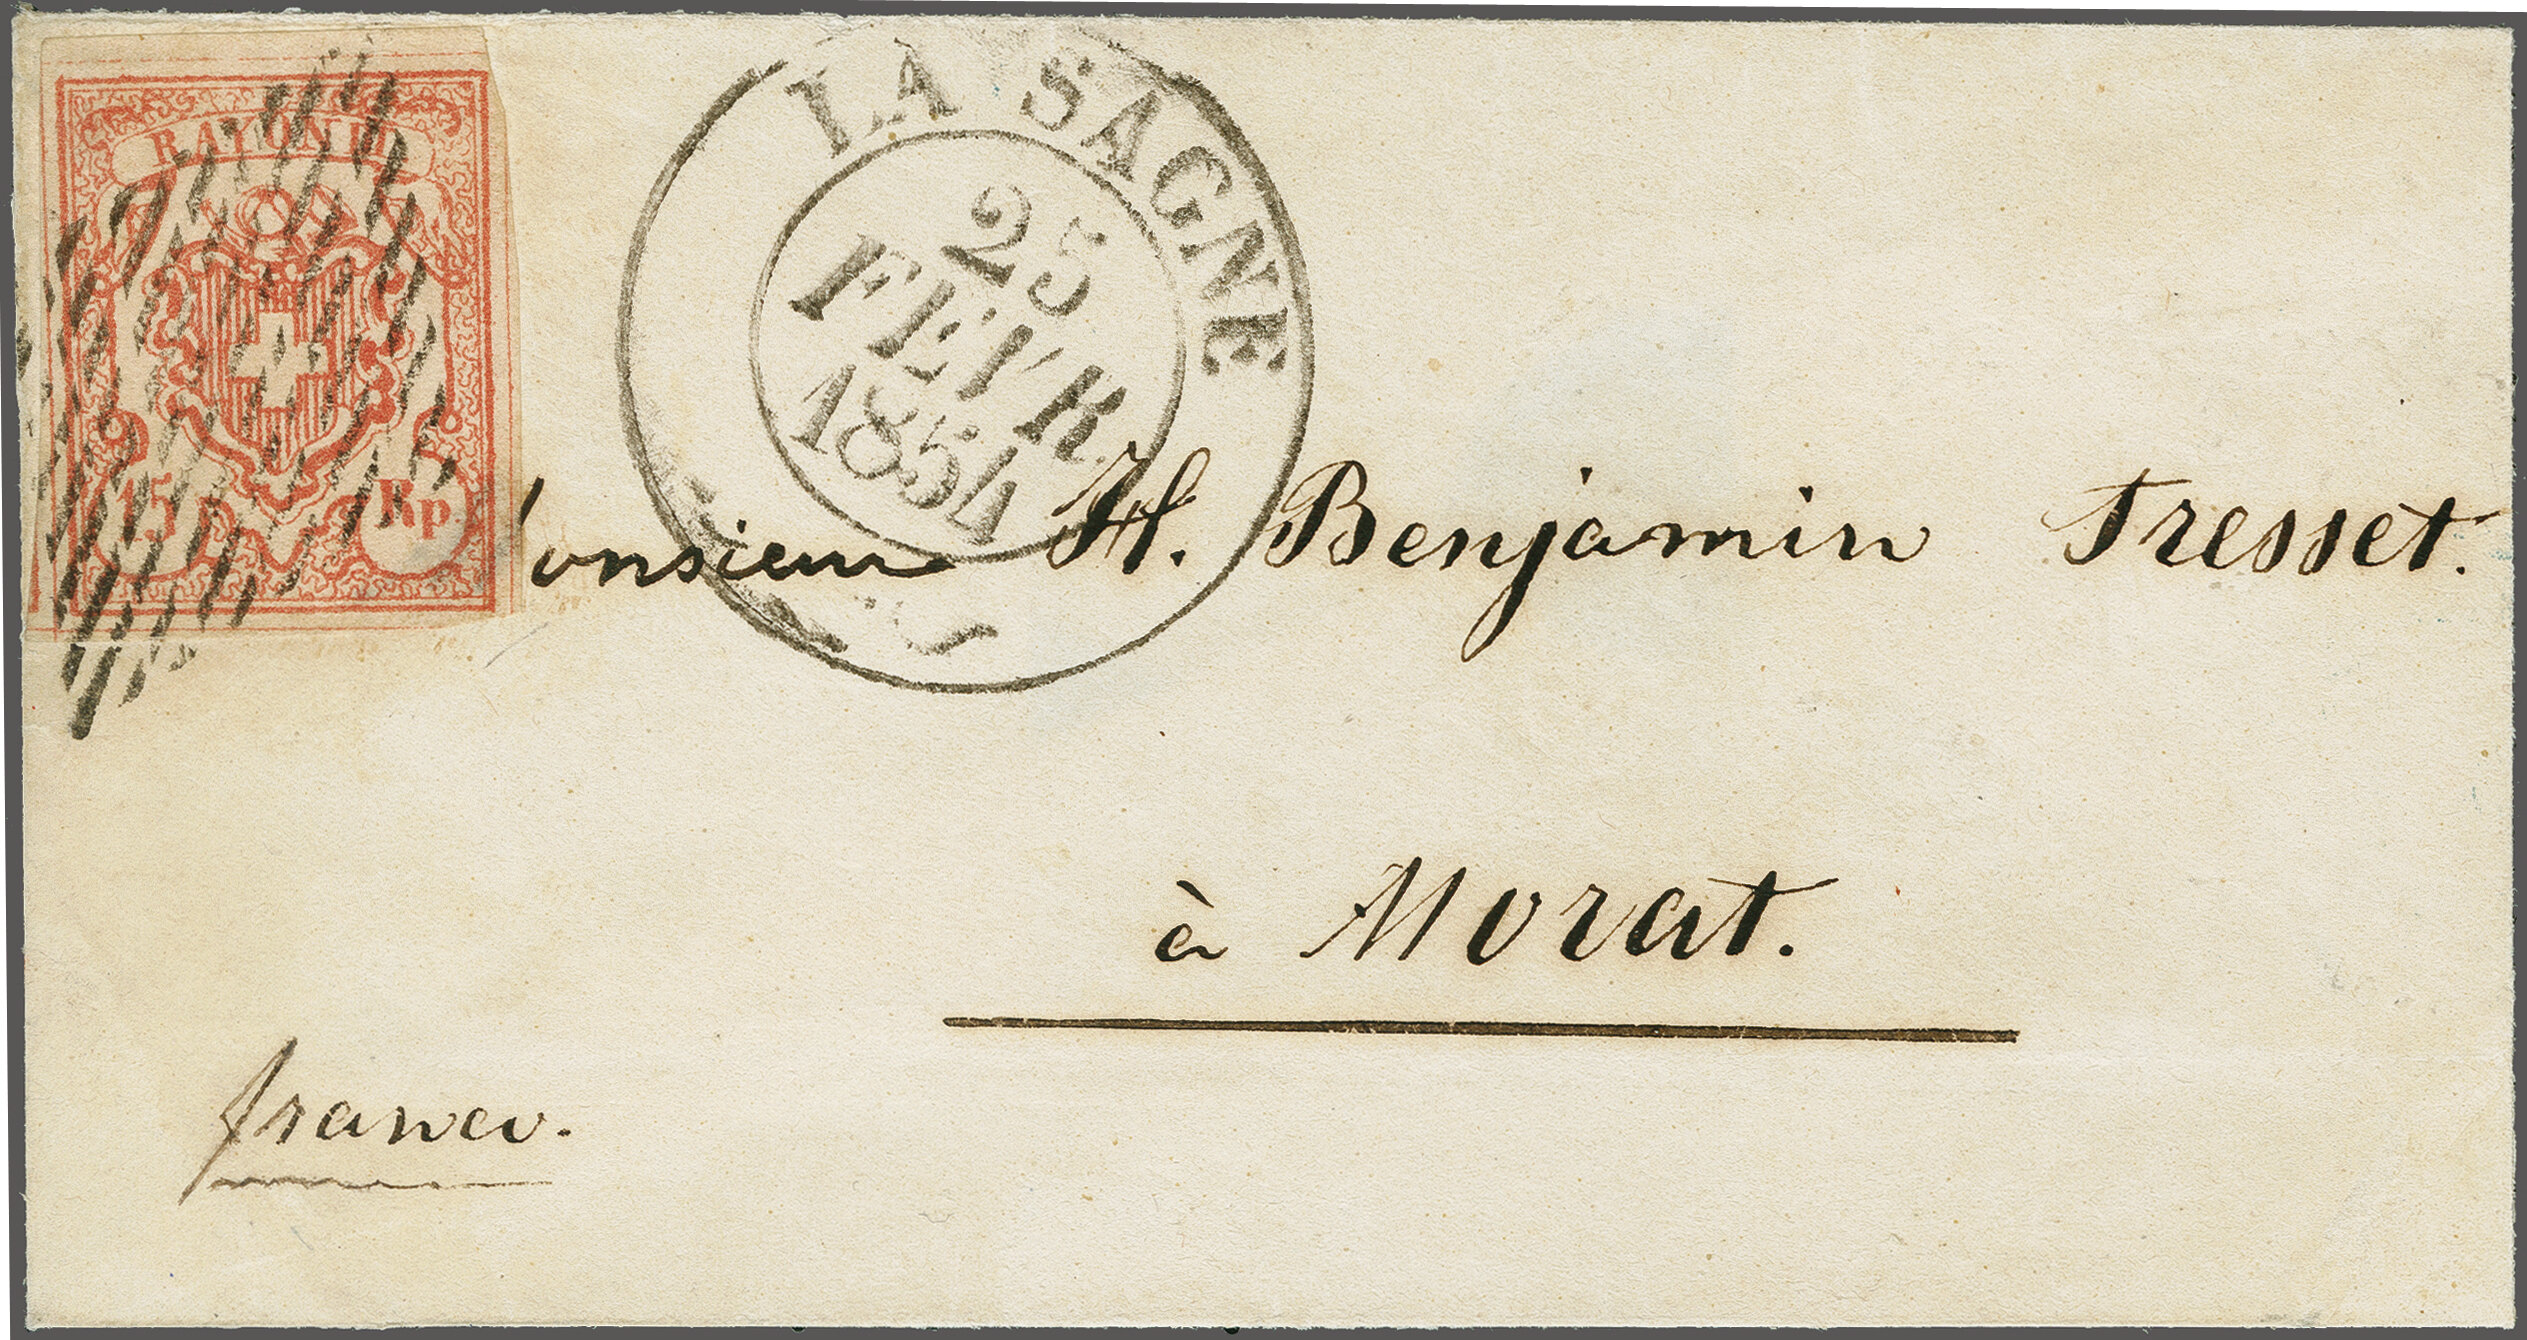 RAYON III
15 Rp.
LA SAGNE
25
FEVR.
1854
onsieur H. Benjamin Tresset.
à Morat.
franco.